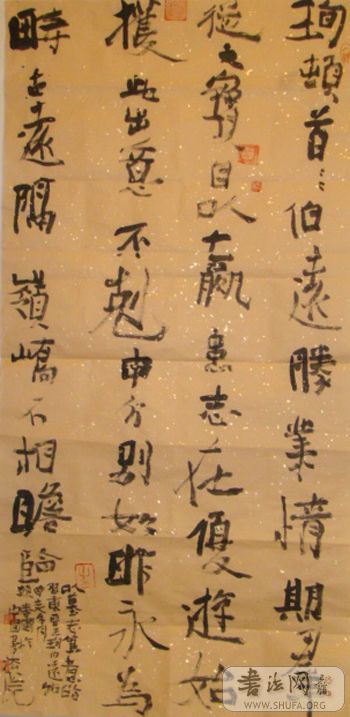 珣頓首〻伯遠勝業情期羣
從之寶自以羸患志在優遊始
獲此出意不剋申分別如昨永為
疇古遠隔嶺嶠不相瞻臨
書法网
WWW.SHUFA.COM